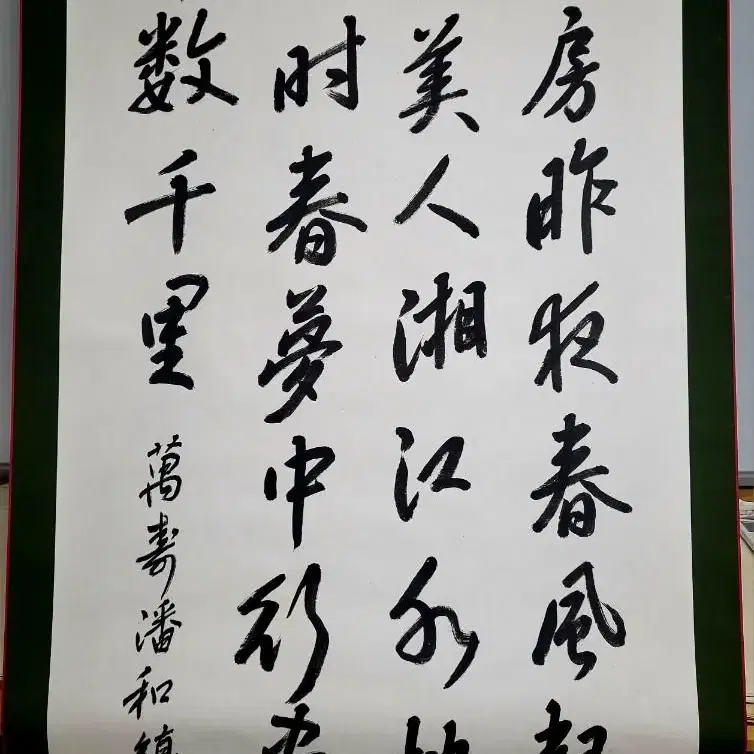 房昨夜春風起
美人湘江水
时春夢中行
数千里
萬壽潘和